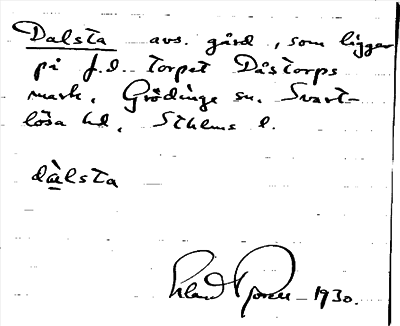 Dalsta avs. gård, som ligger
på f.d. torpet Dåstorps
mark, Grödinge sn. Svart-
lösa hd, Sthlms l.
dàlsta
1930.